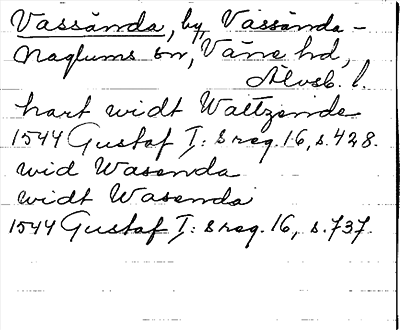 Vassända, by, Vassända-
Naglums sn, Väne hd,
Älvsb. l.
hart widt Waltzende
1544 Gustaf I: s reg. 16, s. 428.
wid Wasenda
widt Wasenda
1544 Gustaf I: s reg. 16, s. 737.